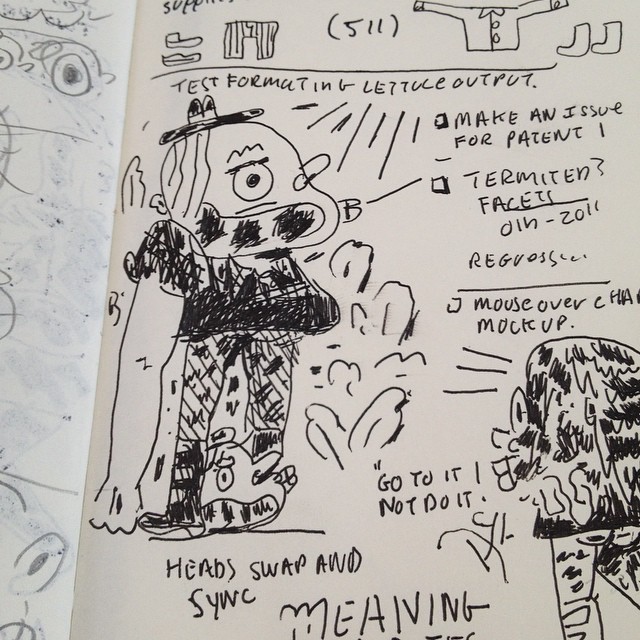 (511)
TEST FORMATING LETTUCE OUTPUT.
MAKE AN ISSUE
FOR PATENT 1
B
TERMITED?
FACETS
2011
MOUSEOVER CHA
MOCKUP.
B
"GO TO IT!
NOT DO IT.
HEADS SWAP AND
SYNC
MEANING